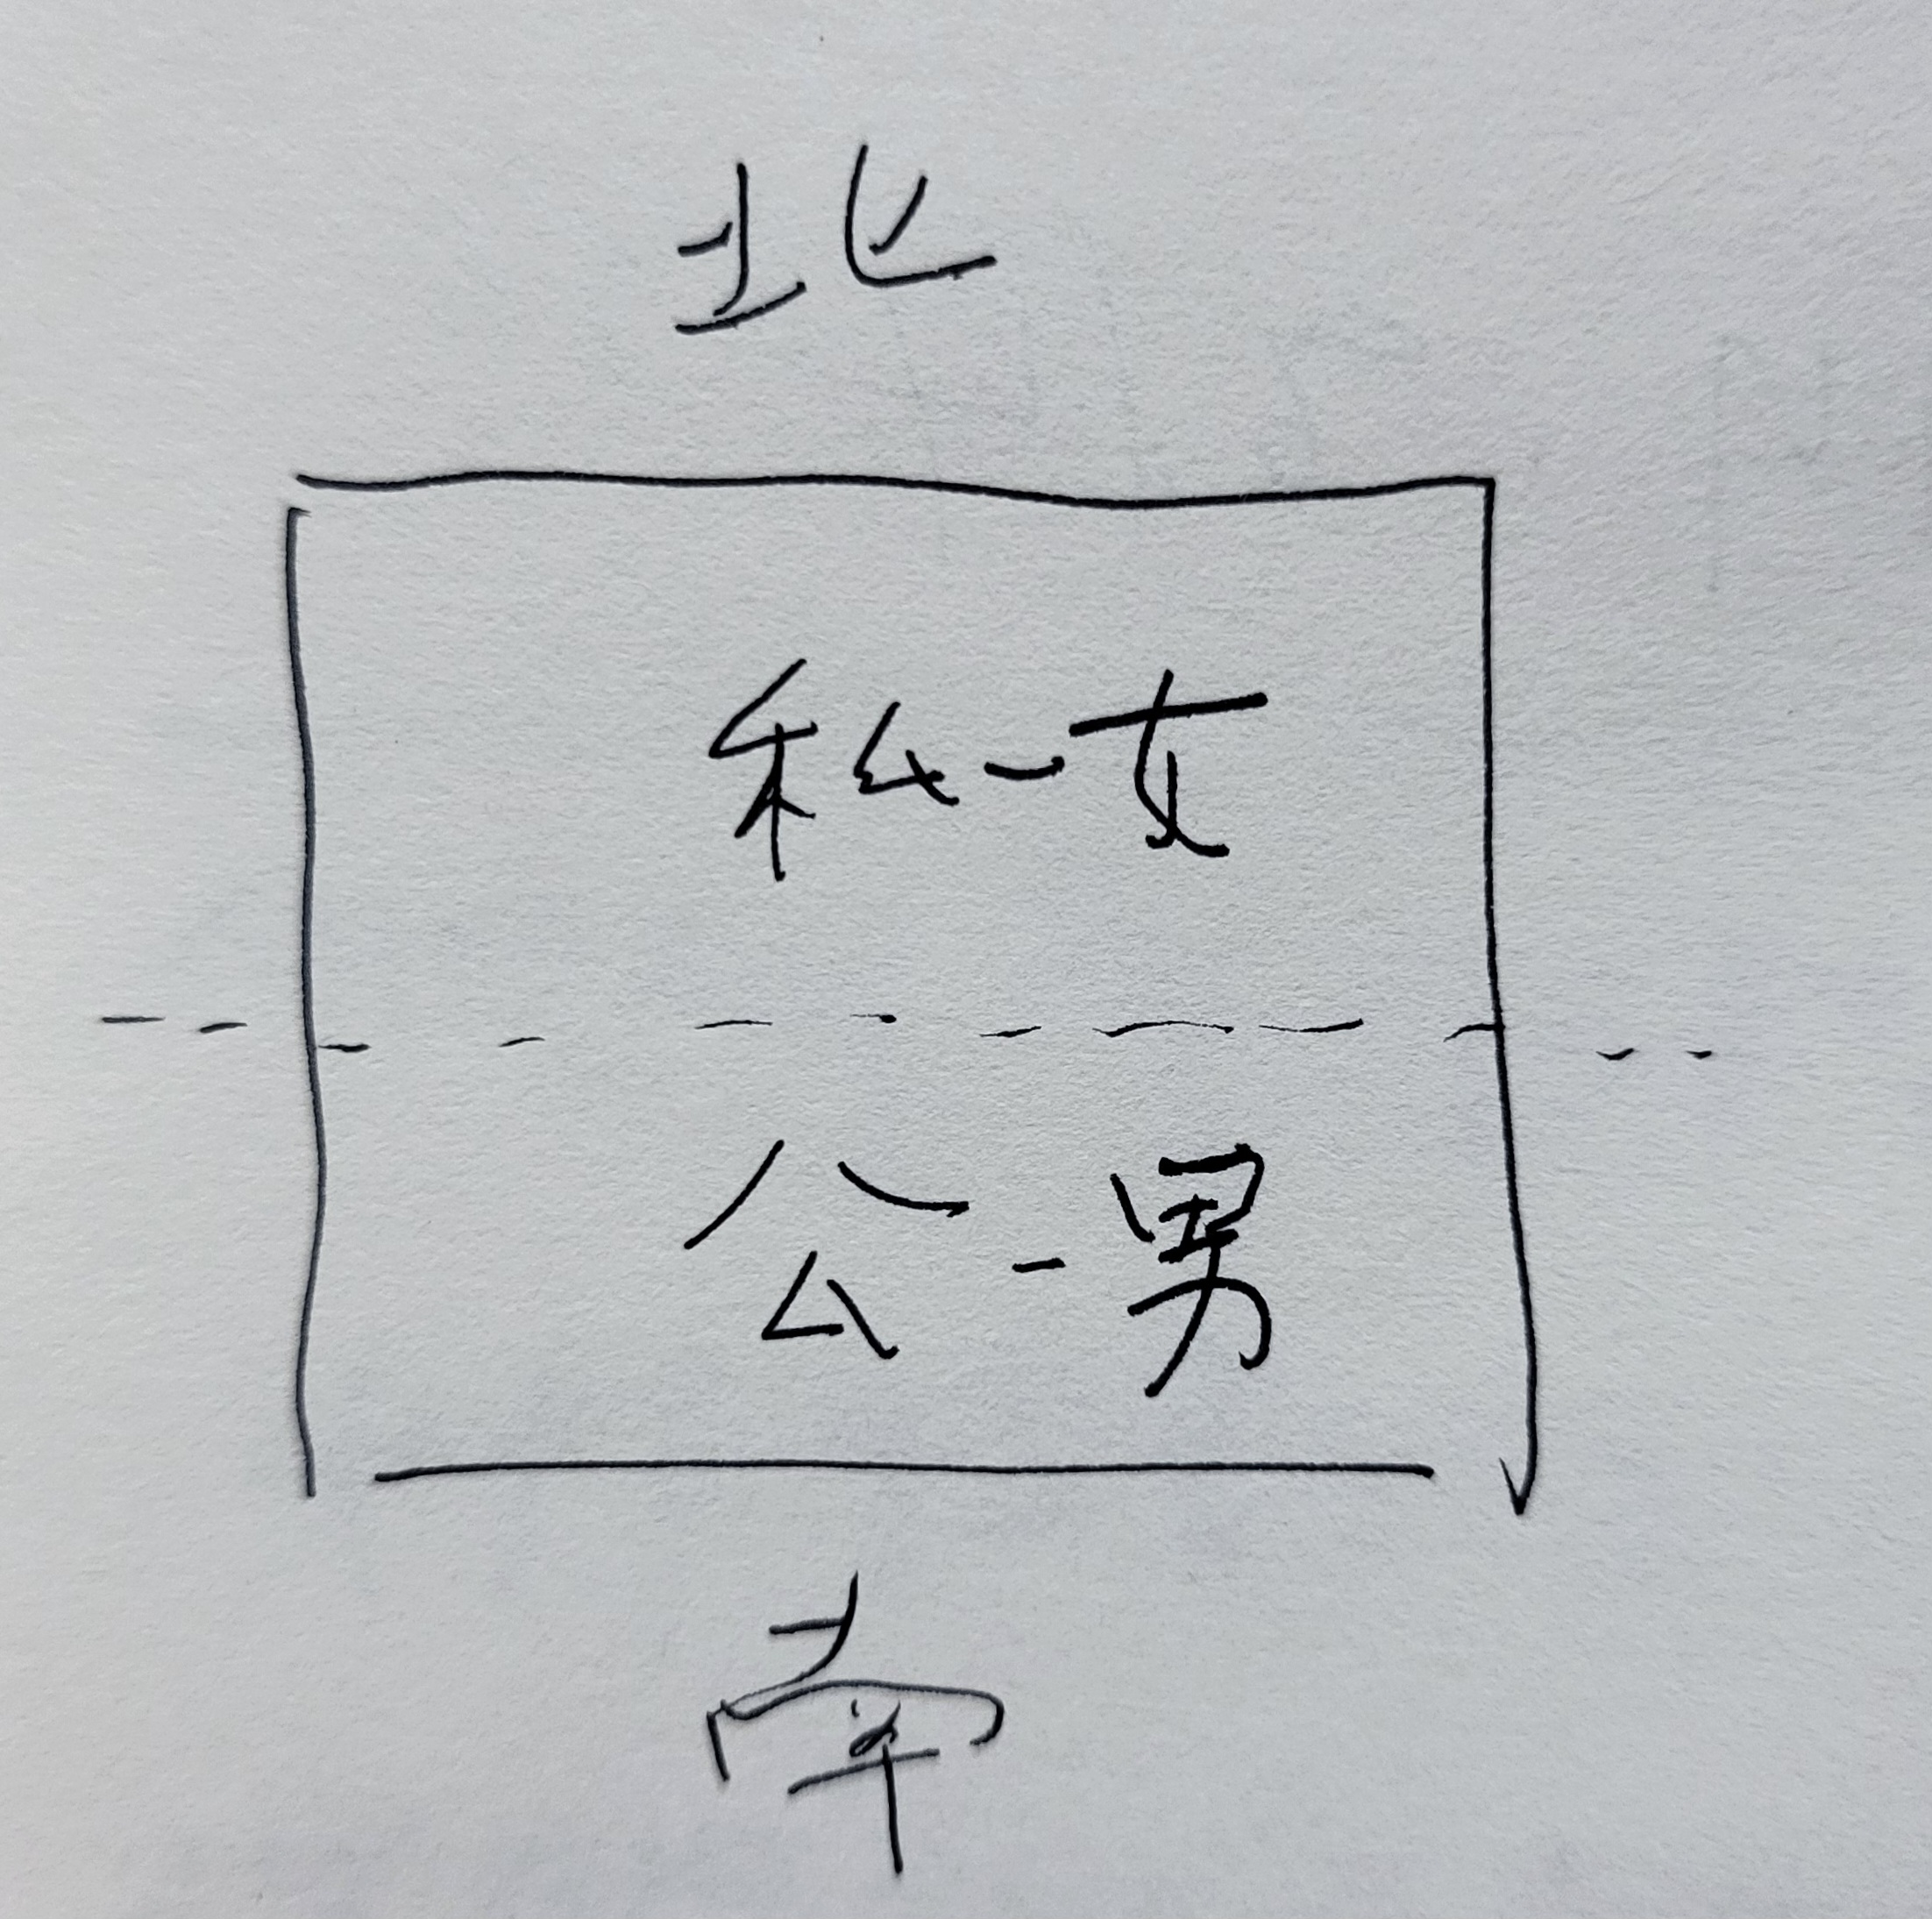 北
私-女
公-男
南